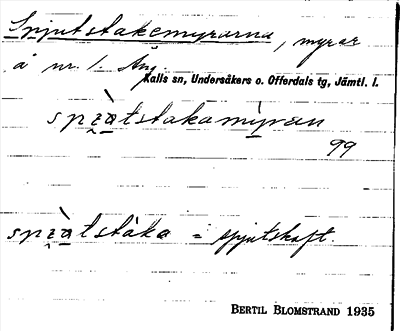 Spjutstakemyrarna, myrar
å nr. 1. Äng
Kalls sn, Undersåkers o. Offerdals tg, Jämtl. l.
spɪ̯àtstakamìyran
99
spɪ̯àtstàka = spjutskaft.
BERTIL BLOMSTRAND 1935